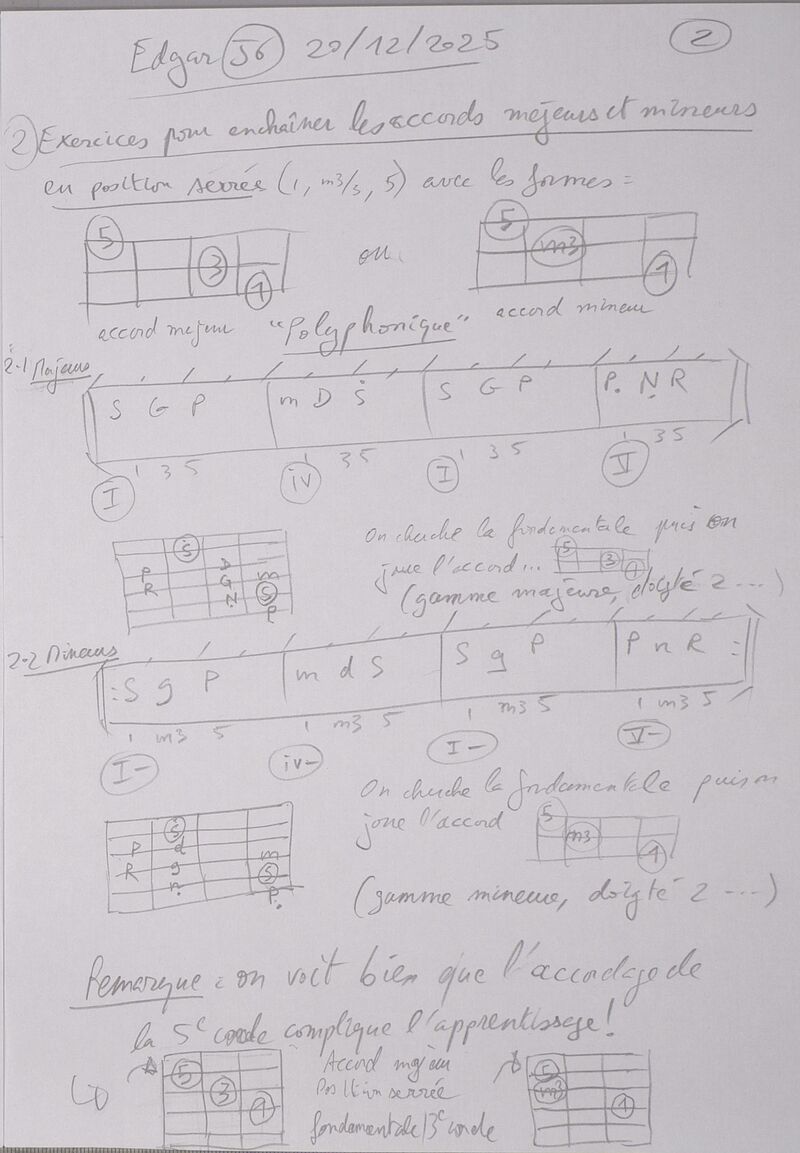 Edgar 56 20/12/2025 2
2 Exercices pour enchaîner les accords majeurs et mineurs
en position serrée (1, m3/3, 5) avec les formes =
5 3 1 ou 5 m3 1
accord majeur "Polyphonique" accord mineur
2-1 Majeurs
S G P m D S S G P P N R
1 3 5 1 3 5 1 3 5 1 3 5
I iv I V
On cherche la fondamentale puis on
joue l'accord... 5 3 1
(gamme majeure, doigté 2 ...)
S
P D
R G m
N S
P
2-2 Mineurs
S g P m d S S g P P n R
1 m3 5 1 m3 5 1 m3 5 1 m3 5
I- iv- I- V-
On cherche la fondamentale puis on
joue l'accord 5 m3 1
(gamme mineure, doigté 2 ...)
S
P d
R g m
n S
P
Remarque : on voit bien que l'accordage de
la 5e corde complique l'apprentissage!
5 3 1 Accord majeur 5 m3 1
Position serrée
fondamentale/3e corde